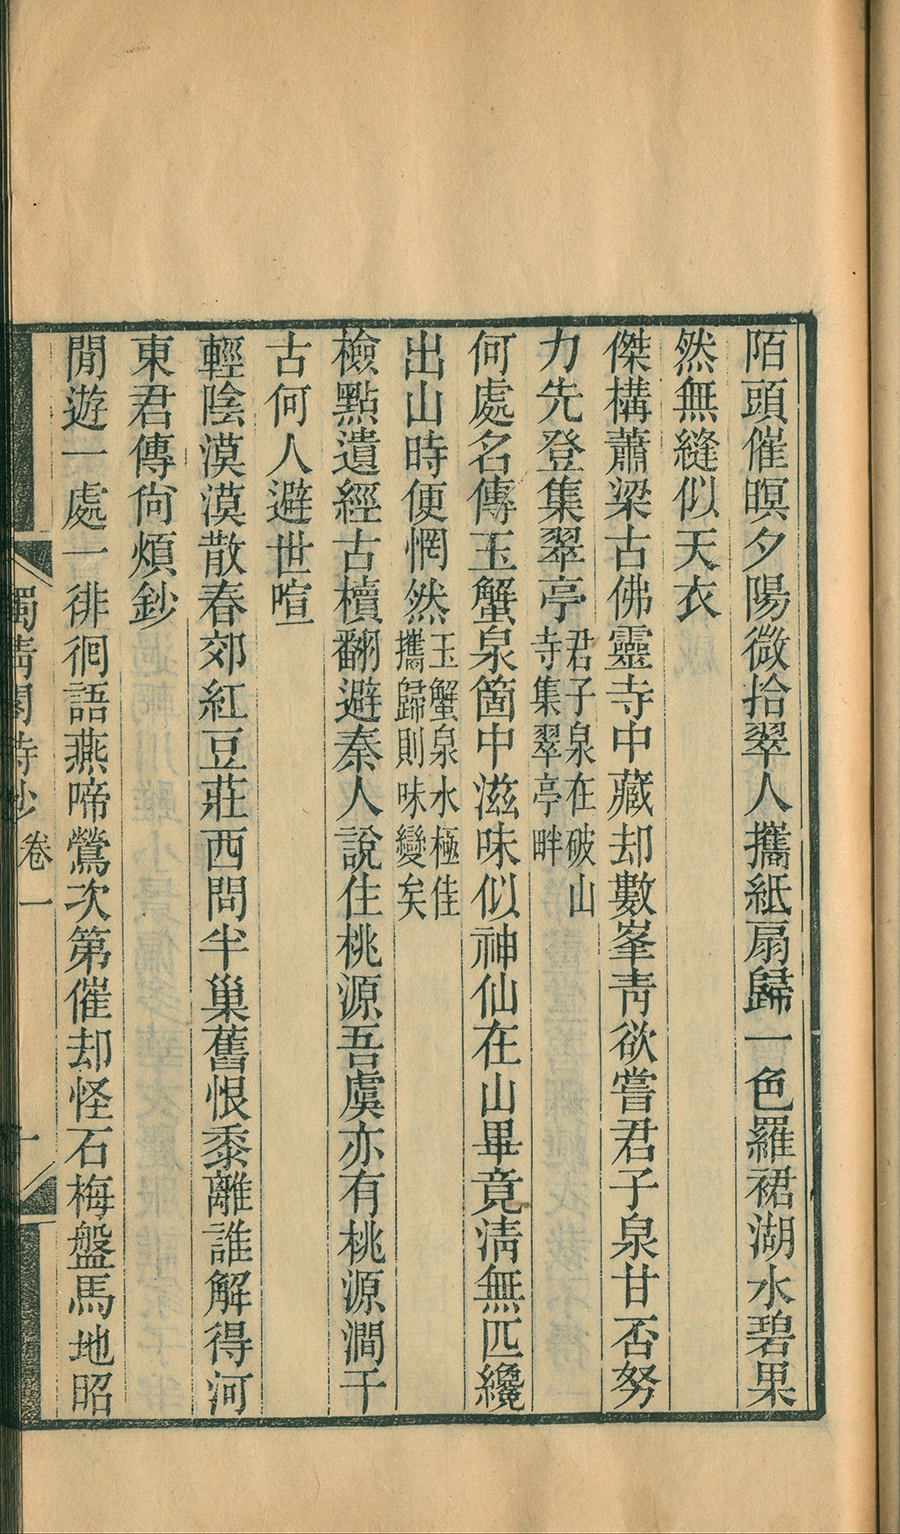 陌頭催暝夕陽微拾翠人攜紙扇歸一色羅裙湖水碧果
然無縫似天衣
傑構蕭梁古佛靈寺中藏却數峯靑欲嘗君子泉甘否努
力先登集翠亭君子泉在破山
寺集翠亭畔
何處名傳玉蟹泉箇中滋味似神仙在山畢竟淸無匹纔
出山時便惘然玉蟹泉水極佳
攜歸則味變矣
檢點遺經古櫝翻避秦人說住桃源吾虞亦有桃源澗千
古何人避世喧
輕陰漠漠散春郊紅豆莊西問半巢舊恨黍離誰解得河
東君傳尙煩鈔
閒遊一處一徘徊語燕啼鶯次第催却怪石梅盤馬地昭
卷一